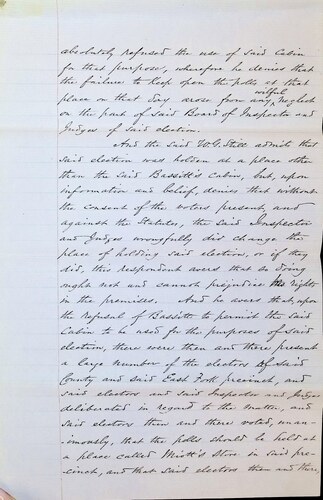 absolutely refused the use of said Cabin
for that purpose, wherefore he denies that
the failure to keep open the polls at that
wilful
place on that day arose from any neglect
on the part of said Board of Inspector and
Judges of said election.
And the said W.G. Still admits that
said election was holden at a place other
than the said Bassitt's Cabin, but, upon
information and belief, denies that without
the consent of the voters present, and
against the Statutes, the said Inspector
and Judges wrongfully did change the
place of holding said election, or if they
did, this respondent avers that so doing
ought not and cannot prejudice his rights
in the premises. And he avers that, upon
the refusal of Bassett to permit the said
Cabin to be used for the purposes of said
election, there were then and there present
a large number of the electors of said
County and said East Fork precinct, and
said electors and said Inspector and Judges
deliberated in regard to the matter, and
said electors then and there voted, unan-
imously, that the polls should be held at
a place called Store in said pre-
cinct, and that said electors then and there,